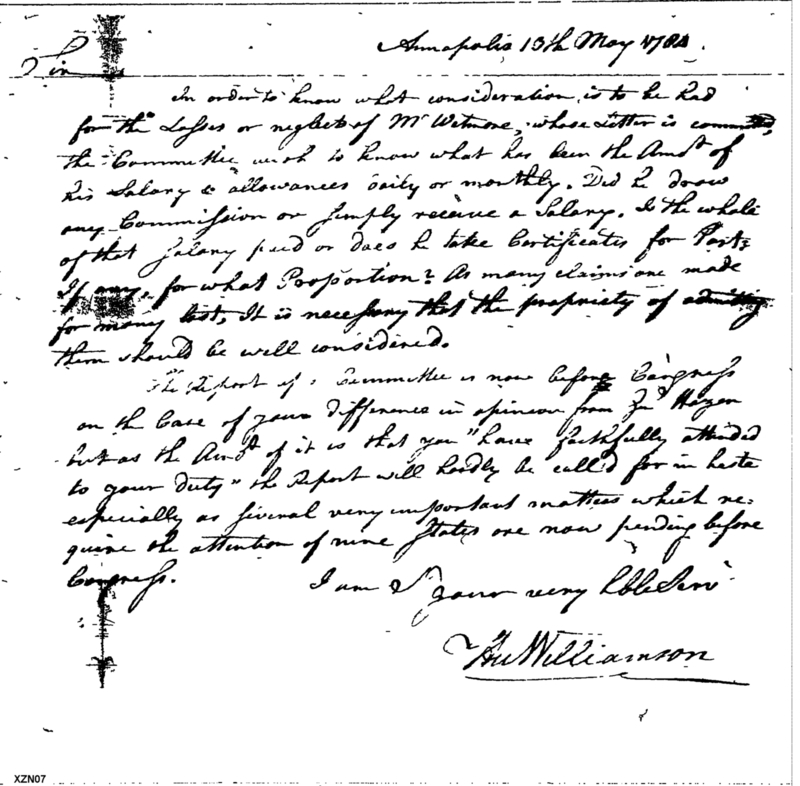 Annapolis 13th May 1784.
Sir
In order to know what consideration is to be had
for the Losses or neglects of Mr Wetmore, whose Letter is committed,
the Committee wish to know what has been the Amt of
his Salary & allowances daily or monthly. Did he draw
any Commission or simply receive a Salary. Is the whole
of that Salary paid or does he take Certificates for Part:
If any, for what Proportion? As many claims are made
for money lost, It is necessary that the propriety of admitting
them should be well considered.
The Report of a Committee is now before Congress
on the Case of your difference in opinion from Hazen
but as the Amt of it is that you "have faithfully attended
to your Duty" the Report will hardly be called for in haste
especially as several very important matters which re:
quire the attention of nine States are now pending before
Congress.
I am Sr
your very hble Serv
Hu Williamson
XZN07